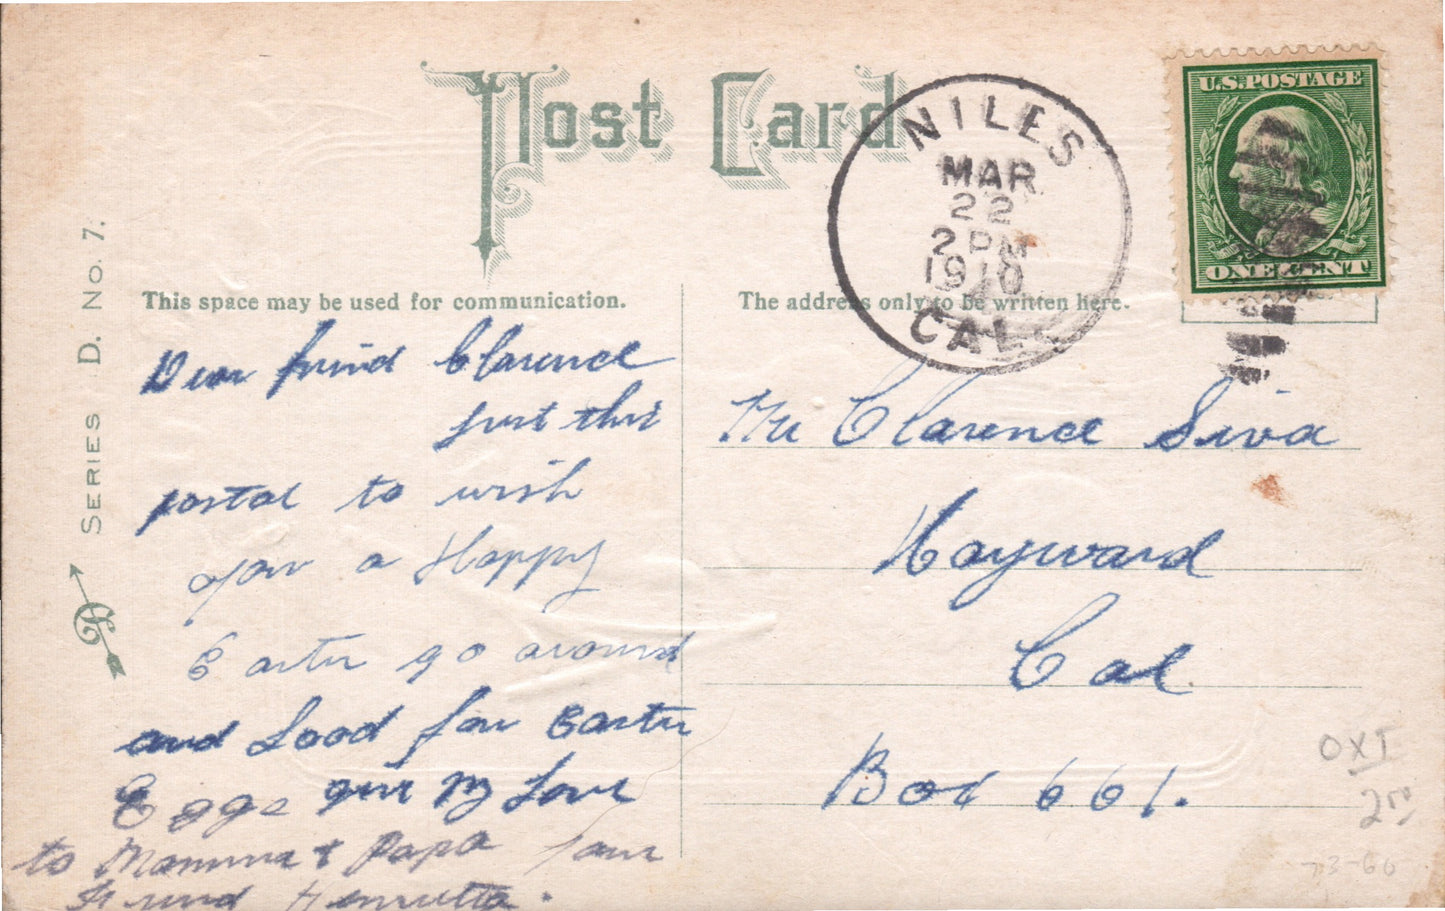 Post Card
NILES
MAR
22
2 PM
1910
CAL.
U.S. POSTAGE
ONE CENT
SERIES D. No. 7.
This space may be used for communication.
The address only to be written here.
Dear friend Clarence
just this
postal to wish
you a Happy
Easter go around
and Lood for Easter
Eggs give My Love
to Mamma & Papa your
Friend Henrietta.
Mr Clarence Siva
Hayward
Cal
Box 661.
OXI
73-60